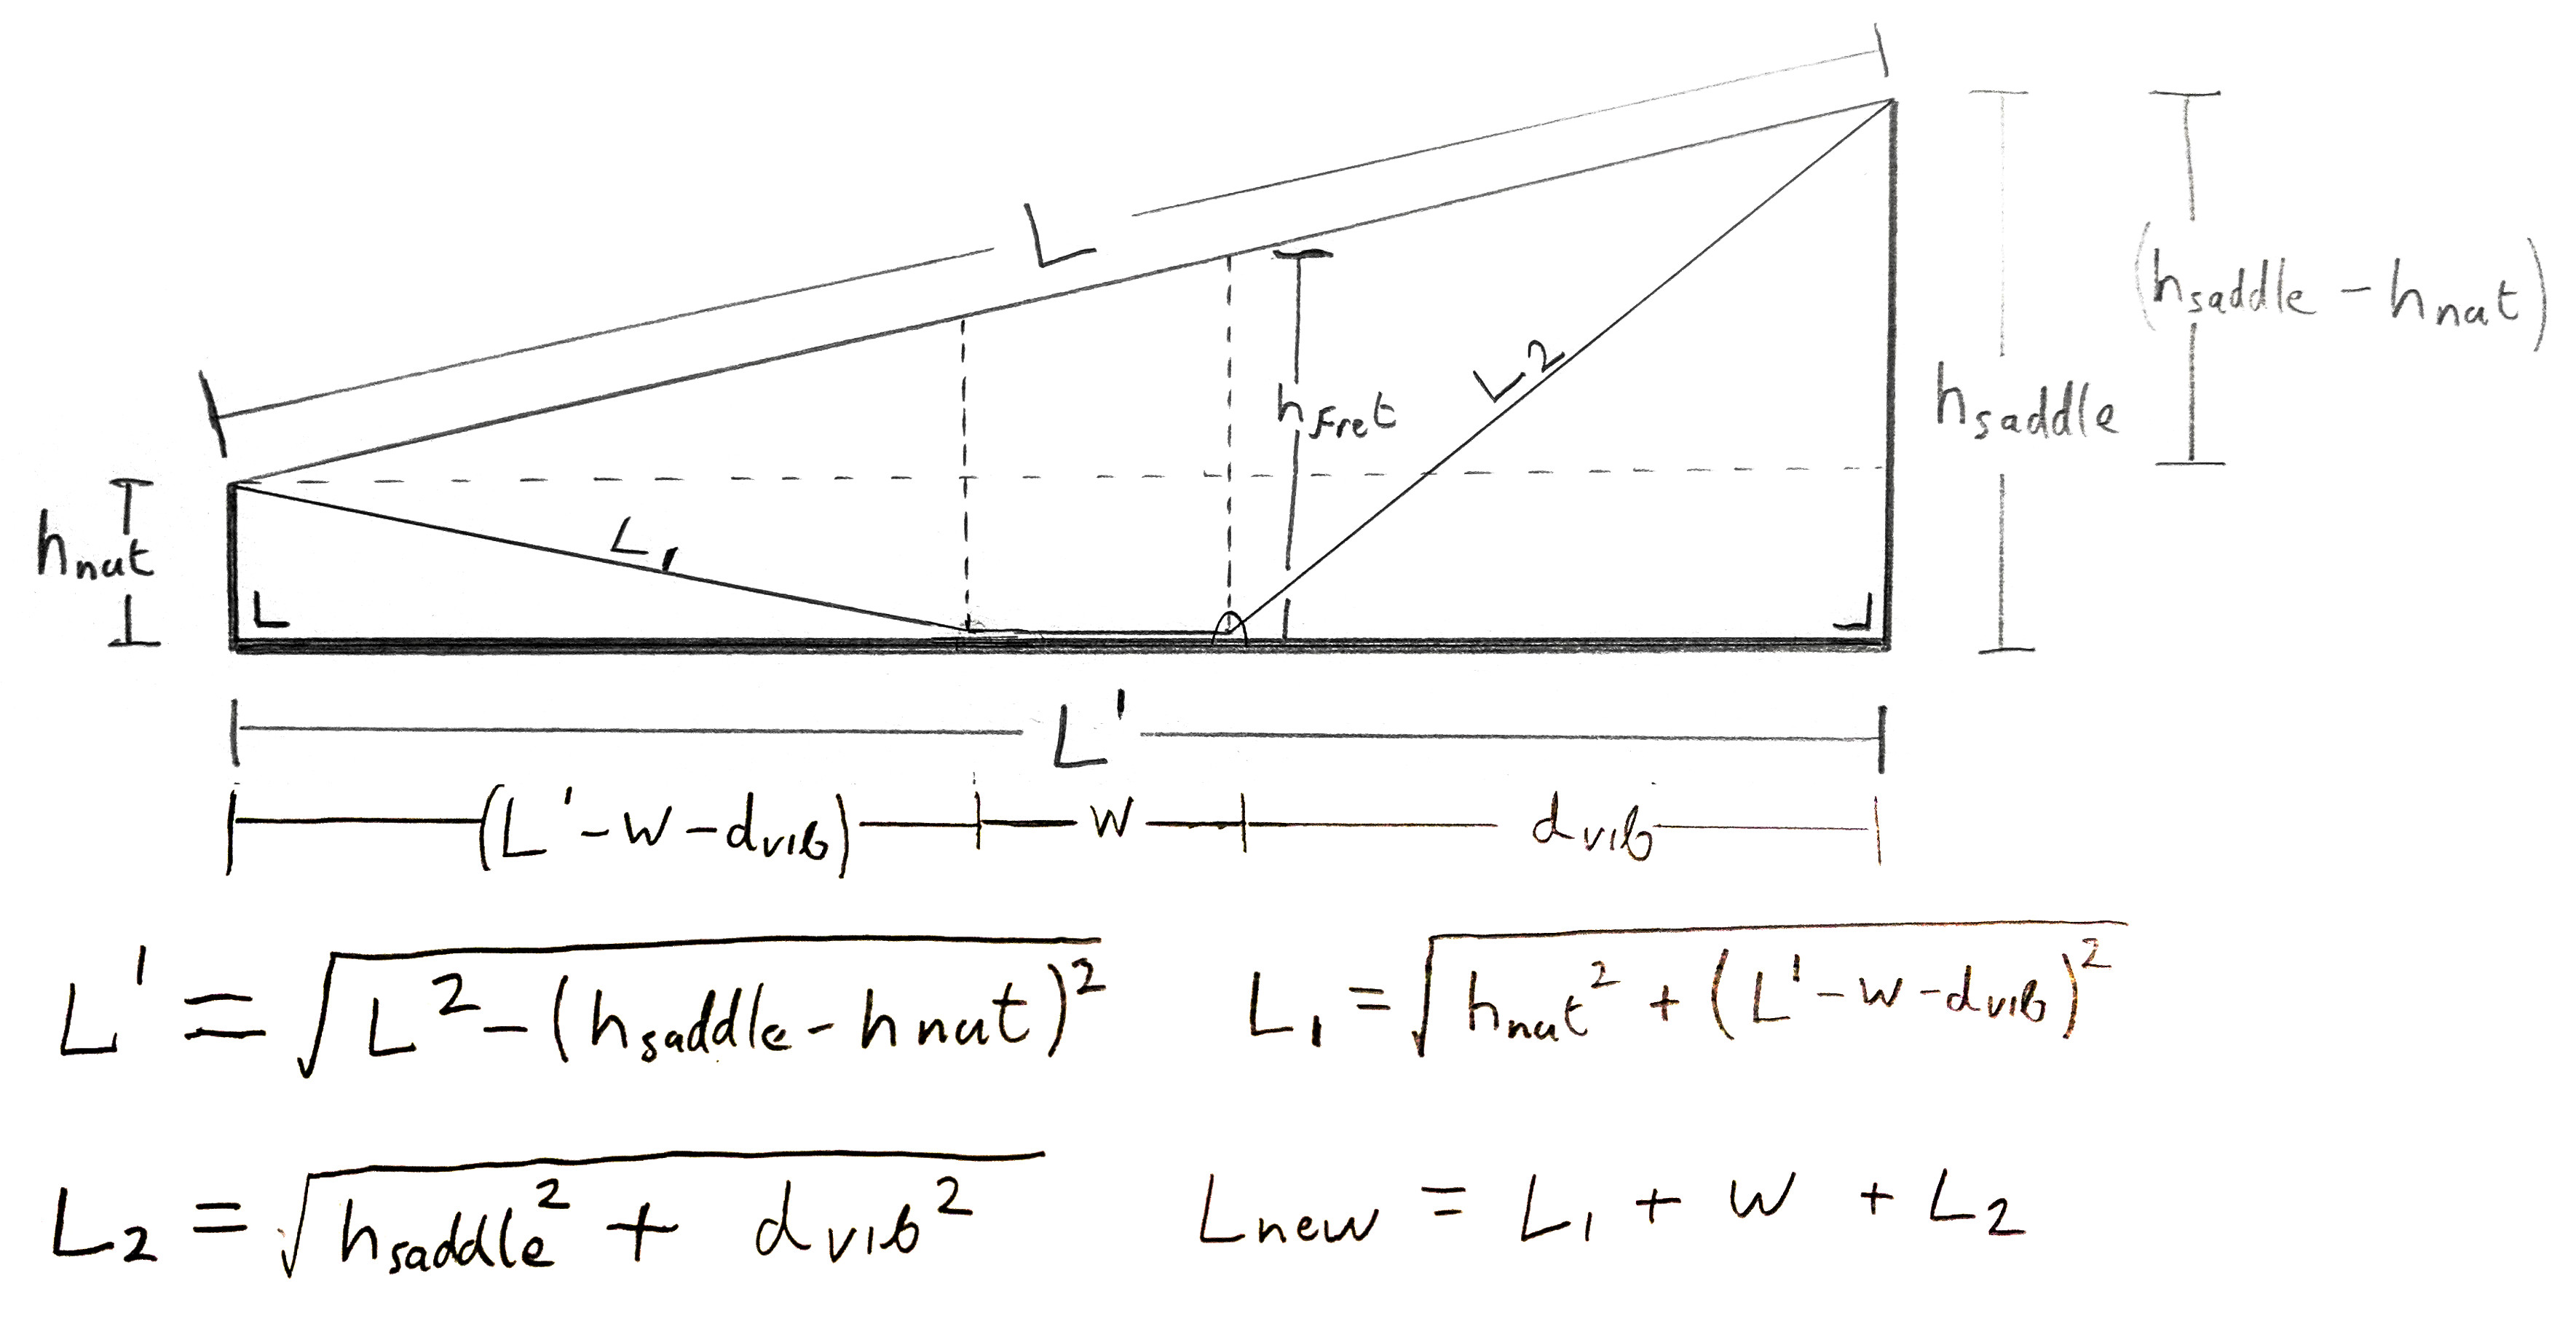 L
(h_saddle - h_nut)
h_saddle
h_fret
L2
h_nut
L₁
L
L'
(L' - w - d_vib)
w
d_vib
L' = √(L² - (h_saddle - h_nut)²)
L₁ = √(h_nut² + (L' - w - d_vib)²)
L₂ = √(h_saddle² + d_vib²)
L_new = L₁ + w + L₂